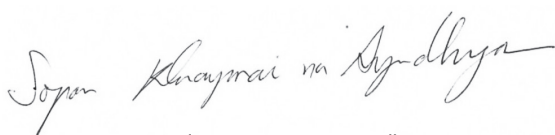 Sopon Kluaymai na Ayudhya